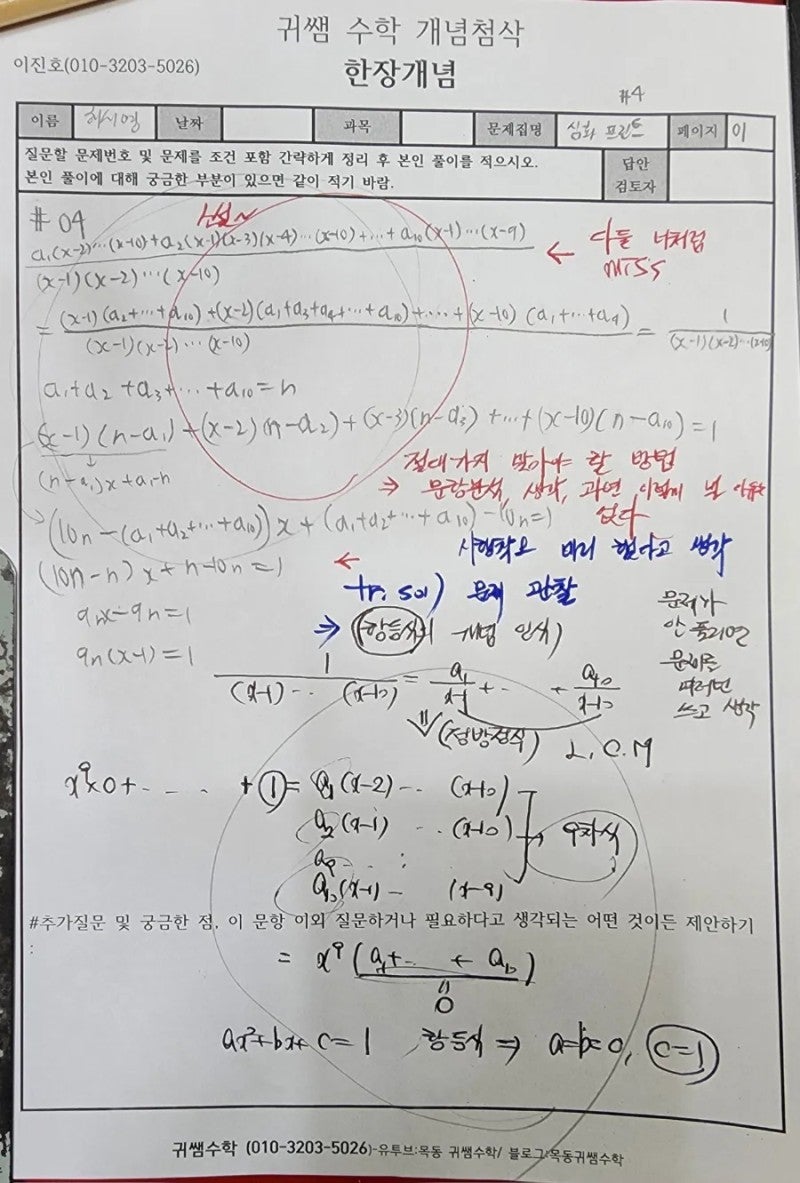 귀쌤 수학 개념첨삭
이진호(010-3203-5026)
한장개념
#4
이름 날짜 과목 문제집명 심화 프린트 페이지 01
질문할 문제번호 및 문제를 조건 포함 간략하게 정리 후 본인 풀이를 적으시오.
본인 풀이에 대해 궁금한 부분이 있으면 같이 적기 바람.
답안
검토자
#04
a₁(x-2)…(x-10)+a₂(x-1)(x-3)(x-4)…(x-10)+…+a₁₀(x-1)…(x-9)
(x-1)(x-2)…(x-10)
← 다들 너처럼
miss
= (x-1)(a₂+…+a₁₀)+(x-2)(a₁+a₃+a₄+…+a₁₀)+…+(x-10)(a₁+…+a₉) = 1
(x-1)(x-2)…(x-10) (x-1)(x-2)…(x-10)
a₁+a₂+a₃+…+a₁₀=n
(x-1)(n-a₁)+(x-2)(n-a₂)+(x-3)(n-a₃)+…+(x-10)(n-a₁₀)=1
(n-a₁)x+a₁-n
절대가지 말아야 할 방법
⇒ 문항분석, 생각, 과연 이렇게 낼 이유는
없다
(10n-(a₁+a₂+…+a₁₀))x+(a₁+a₂+…+a₁₀)-10n=1
시행착오 미리 했다고 생각
(10n-n)x+n-10n=1
←
tr. sol) 문제 관찰
9nx-9n=1
⇒ (항등식의 개념 인식)
9n(x-1)=1
문제가
안 풀리면
문제를
쓰고 생각
1/(x-1)…(x-10) = a₁/(x-1)+…+a₁₀/(x-10)
⇓ (정방정식) L.C.M
x⁹×0+……+①=a₁(x-2)…(x-10)
a₂(x-1)…(x-10) → 9차식
a₉…:
a₁₀(x-1)…(x-9)
#추가질문 및 궁금한 점, 이 문항 이외 질문하거나 필요하다고 생각되는 어떤 것이든 제안하기
:
= x⁹(a₁+…+a₁₀)
=
0
ax²+bx+c=1 항등식 ⇒ a=b=0, c=1
귀쌤수학 (010-3203-5026)-유투브:목동 귀쌤수학/ 블로그:목동귀쌤수학